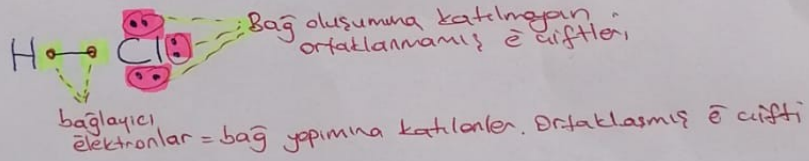 Bağ oluşumuna katılmayan
ortaklanmamış ē çiftleri
H Cl
bağlayıcı
elektronlar = bağ yapımına katılanlar. Ortaklaşmış ē çifti